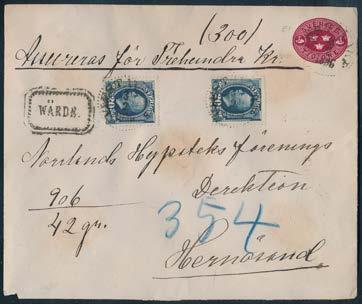 (300)
Assureras för Trehundra Kr.
WÄRDE.
Norrlands Hypoteks Förenings
906
Direktion
42 gr.
354
Hernösand